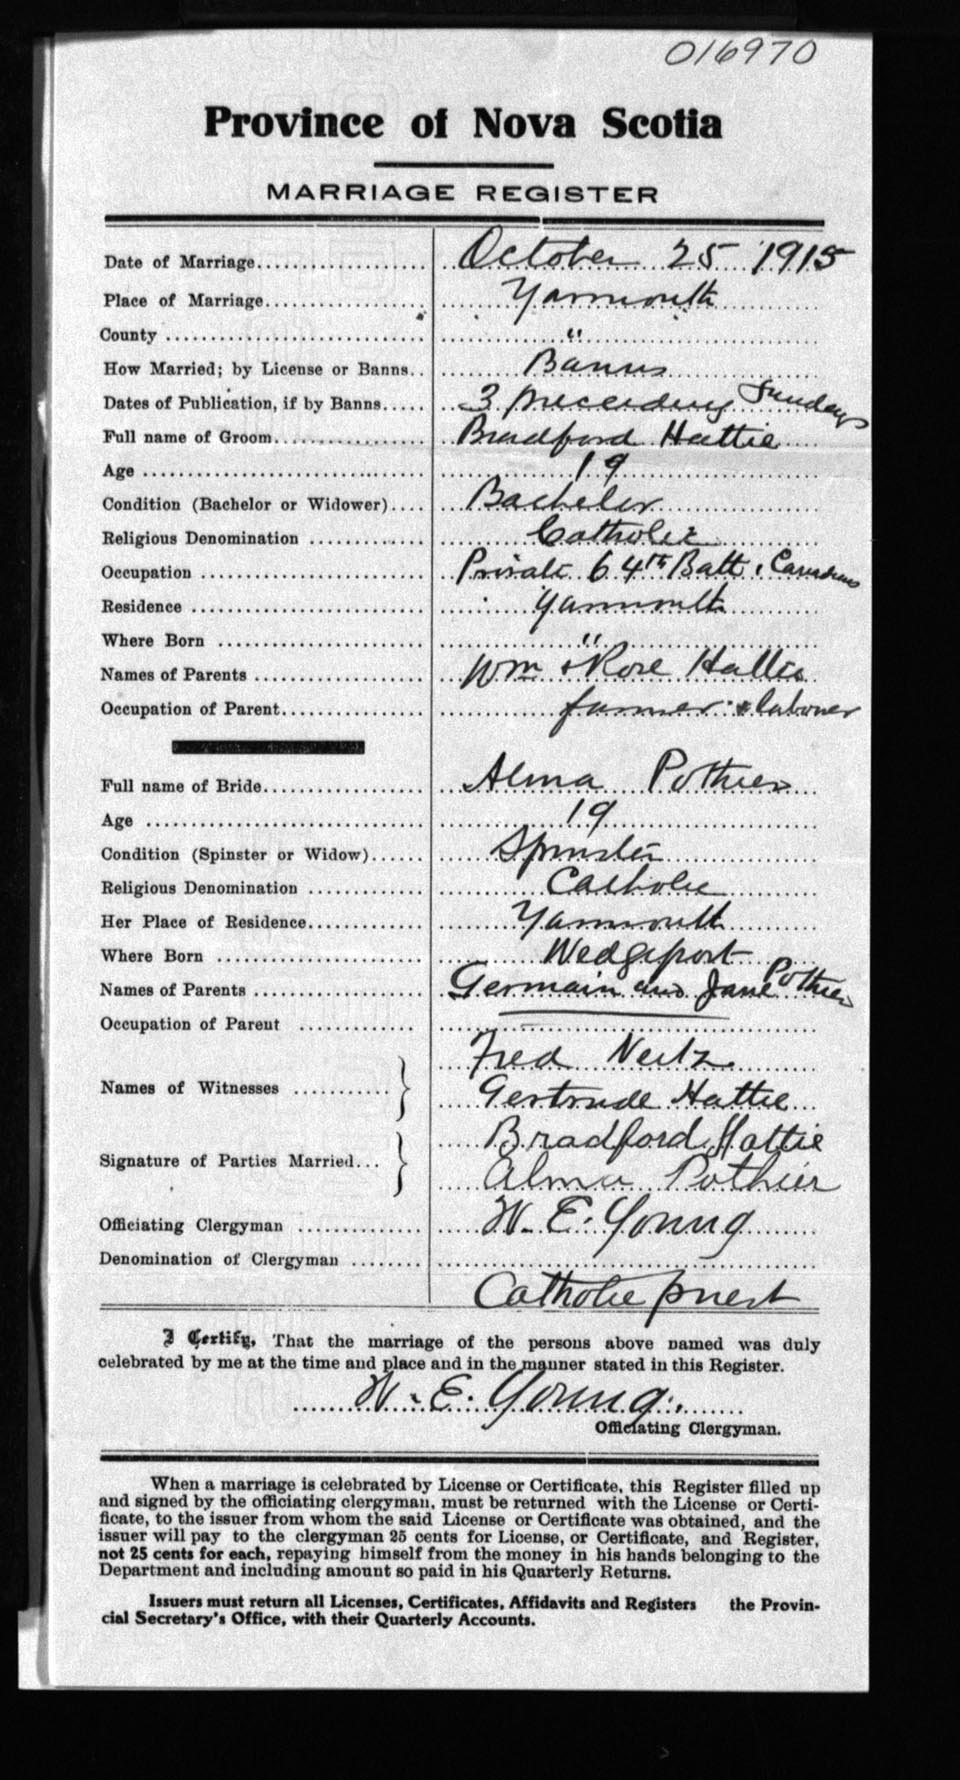 016970
Province of Nova Scotia
MARRIAGE REGISTER
Date of Marriage.................... October 25 1915
Place of Marriage.................... Yarmouth
County .................... "
How Married; by License or Banns.. Banns
Dates of Publication, if by Banns..... 3 preceeding Sundays
Full name of Groom.................... Bradford Hattie
Age .................... 19
Condition (Bachelor or Widower).... Bachelor
Religious Denomination ............ Catholic
Occupation .................... Private 64th Batt. Canadians
Residence .................... Yarmouth
Where Born .................... "
Names of Parents .................... Wm & Rose Hattie
Occupation of Parent.................... farmer & laborer
Full name of Bride.................... Alma Pothier
Age .................... 19
Condition (Spinster or Widow)...... Spinster
Religious Denomination ............ Catholic
Her Place of Residence............ Yarmouth
Where Born .................... Wedgeport
Names of Parents .................... Germain and Jane Pothier
Occupation of Parent ............
Names of Witnesses ........... } Fred Neitz
Gertrude Hattie
Signature of Parties Married... } Bradford Hattie
Alma Pothier
Officiating Clergyman ............ W. E. Young
Denomination of Clergyman ........
Catholic priest
I Certify, That the marriage of the persons above named was duly
celebrated by me at the time and place and in the manner stated in this Register.
W. E. Young
Officiating Clergyman.
When a marriage is celebrated by License or Certificate, this Register filled up
and signed by the officiating clergyman, must be returned with the License or Certi-
ficate, to the issuer from whom the said License or Certificate was obtained, and the
issuer will pay to the clergyman 25 cents for License, or Certificate, and Register,
not 25 cents for each, repaying himself from the money in his hands belonging to the
Department and including amount so paid in his Quarterly Returns.
Issuers must return all Licenses, Certificates, Affidavits and Registers the Provin-
cial Secretary's Office, with their Quarterly Accounts.